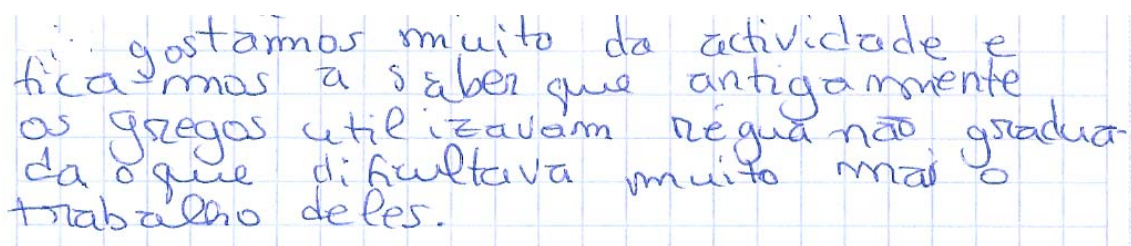 gostamos muito da actividade e
fica-mos a saber que antigamente
os gregos utilizavam régua não gradua-
da o que dificultava muito mai o
trabalho deles.